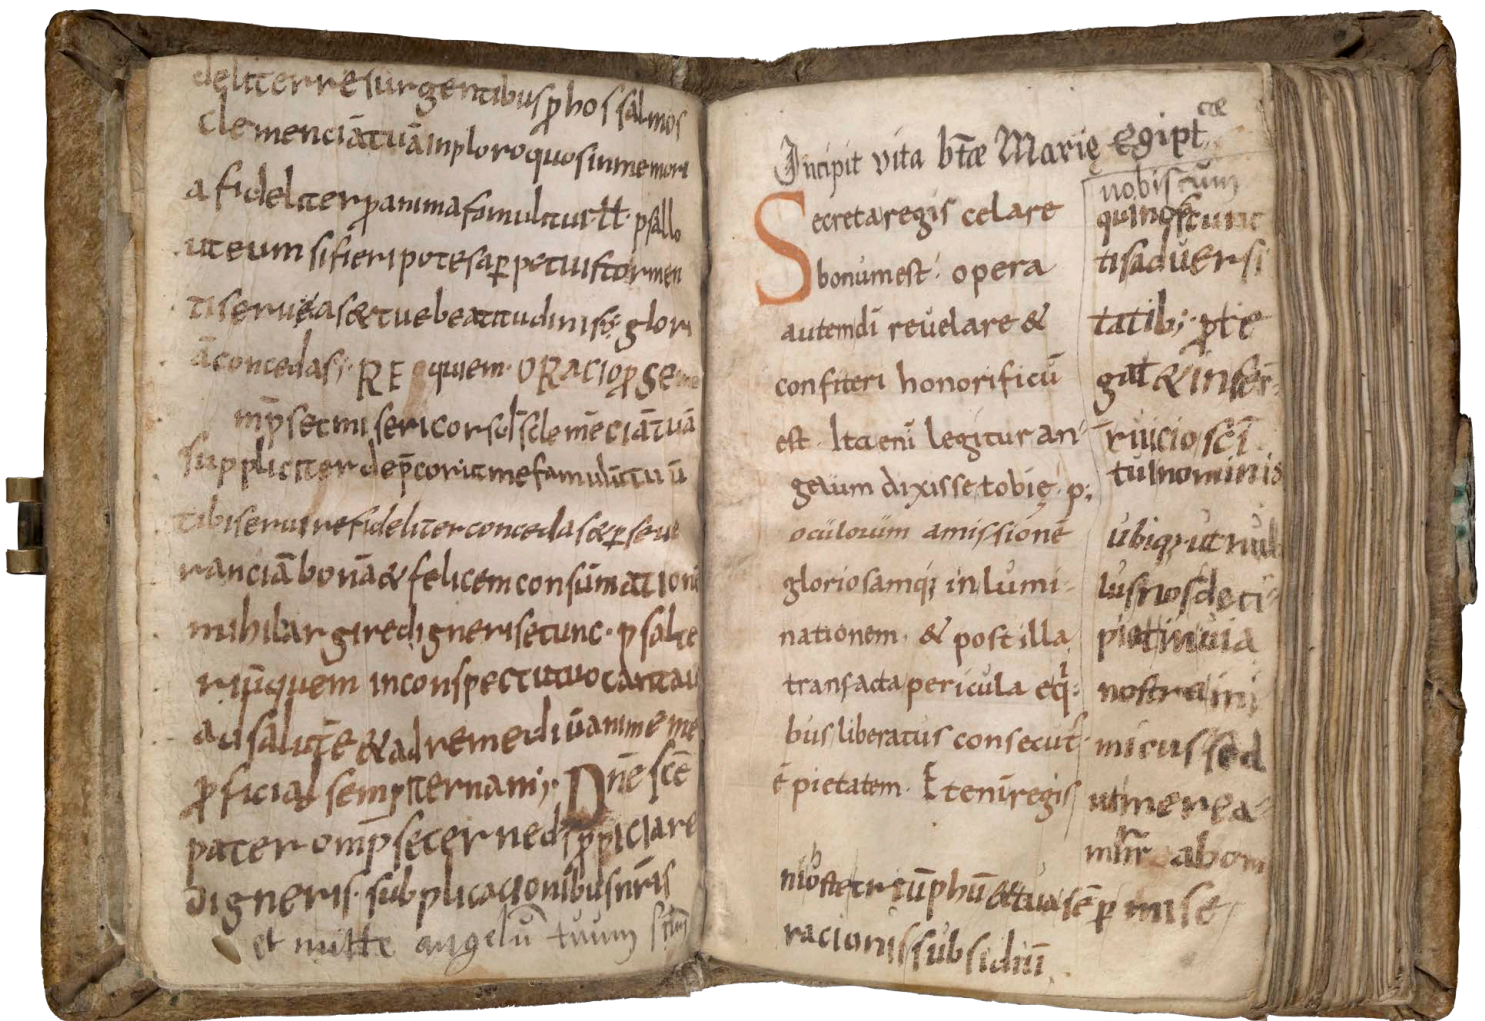 deliter resurgentibus ꝓ hos salmos
clemenciā tuā inploro quos in memori
a fideliter ꝓ anima fomuli tui · psallo
ut eum si fieri potes a ꝑpetuis tormen
tis eruas & tue beatitudinis glori
ā concedas; REquiem · ORACIO ꝓ SE
mp̄s et misericors clemēciā tuā
suppliciter dep̄cor ut me famulū tuū
tibi seruire fideliter concedas & ꝑseue
ranciā bonā & felicem consūmationē
mihi largire digneris et unc · psalte
riū quem in conspectu tuo cantaui
ad salutē & ad remediū anime me
ꝓficiat sempiternam; Dn̄e sc̄e
pater omp̄s eterne d̄s ꝓpiciare
digneris · subplicacionibus nr̄is
et mitte angelū tuum
Incipit vita bt̄æ Marię Egiptcæ
Secreta regis celare
bonum est · opera
autem dī reuelare &
confiteri honorificū
est · Ita enī legitur an-
gelum dixisse tobię · p;
oculorum amissionē
gloriosamq; inlumi-
nationem · & post illa
transacta pericula eqi
bus liberatus consecut;
ē pietatem · Etenī regis
nobiscum
qui nos
tis aduersi
tatib; ꝓte
gat & in
ruicio sc̄i
tui nominis
ubiq; ut nul
lus nos deci-
piat in uia
nostra ini
micus sed
ut merea-
mur abom
nib; triūphū & tua sēꝑ mise
racionis subsidiū